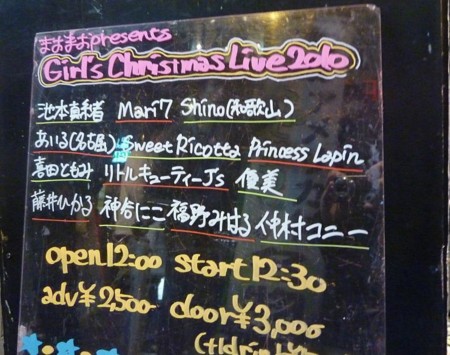 まおまおpresents
Girl's Christmas Live2010
池本真緒 Mari7 Shino(和歌山)
あいる(名古屋) Sweet Ricotta Princess Lapin
喜田ともみ リトルキューティーJ's 優美
藤井ひかる 神谷にこ 福野みはる 仲村コニー
open12:00 start12:30
adv¥2,500 door¥3,000